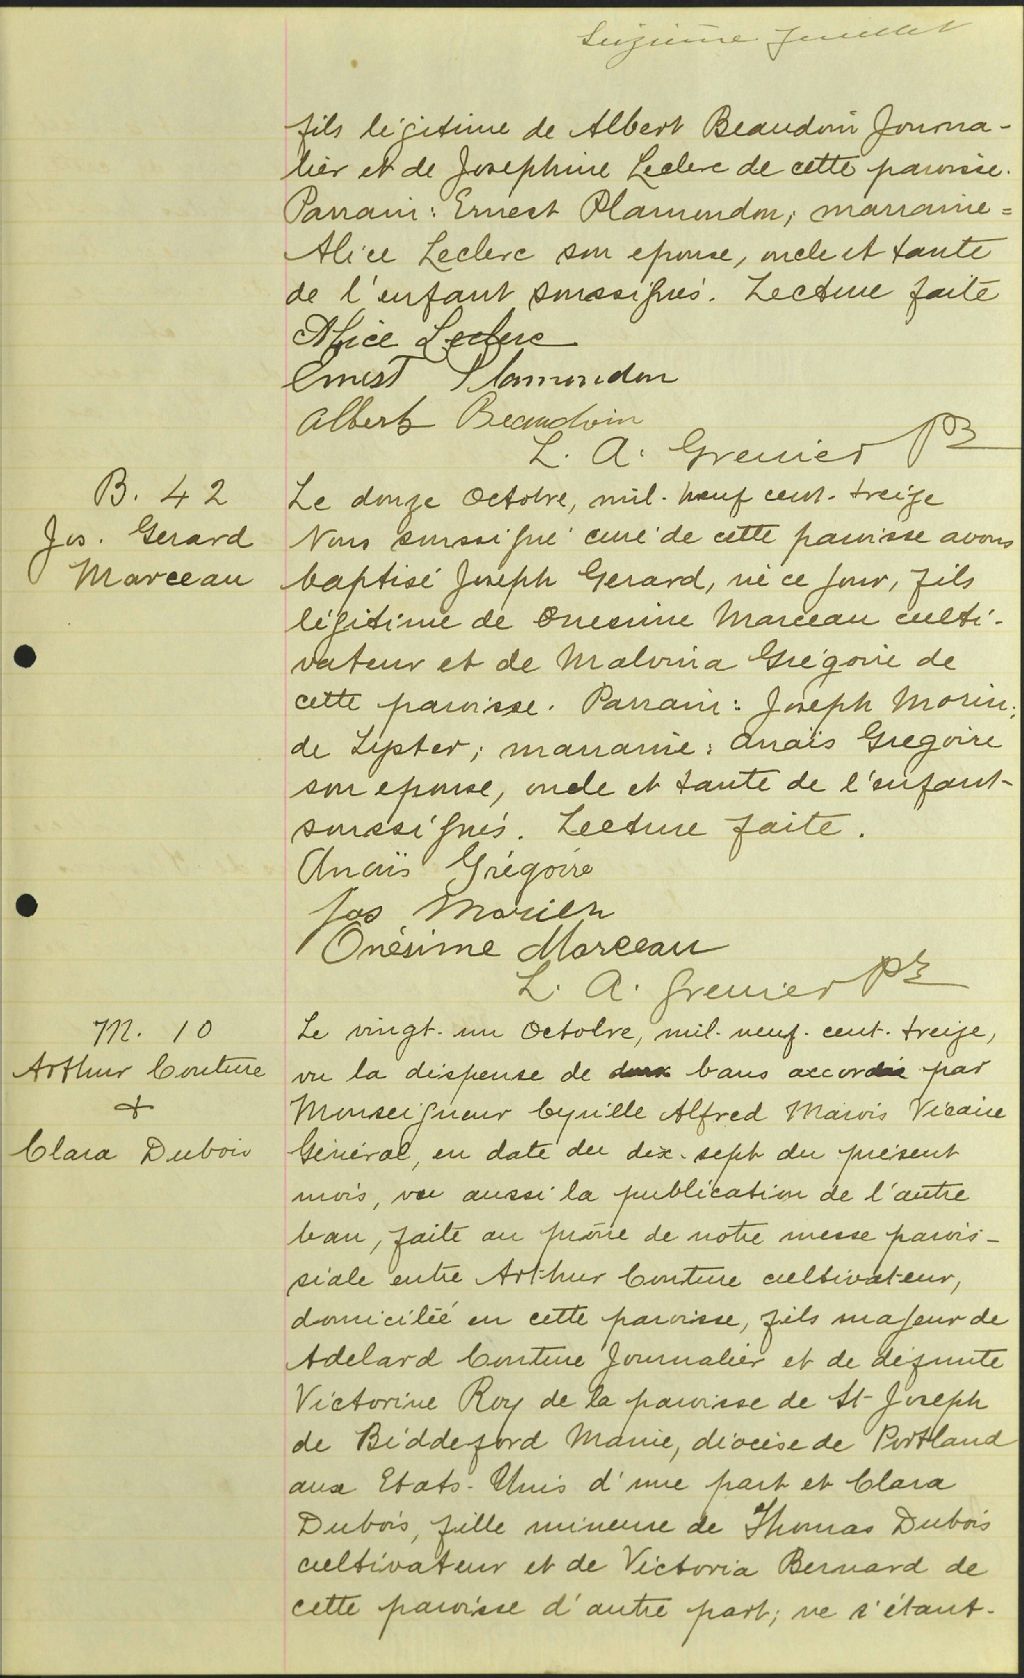 Seizième feuillet
fils légitime de Albert Beaudoin Journa-
lier et de Josephine Leclerc de cette paroisse.
Parrain: Ernest Plamondon; marraine =
Alice Leclerc son epouse, oncle et tante
de l'enfant soussignés. Lecture faite
Alice Leclerc
Ernest Plamondon
Albert Beaudoin
L. A. Grenier Ptre
B. 42
Jos. Gerard
Marceau
Le douze Octobre, mil-neuf cent-treize
Nous soussigné curé de cette paroisse avons
baptisé Joseph Gerard, né ce jour, fils
légitime de Onesime Marceau culti-
vateur et de Malvina Grégoire de
cette paroisse. Parrain: Joseph Morin;
de Lyster; marraine: Anaïs Gregoire
son epouse, oncle et tante de l'enfant-
soussignés. Lecture faite.
Anaïs Grégoire
Jos Morien
Onésime Marceau
L. A. Grenier Ptre
M. 10
Arthur Couture
+
Clara Dubois
Le vingt-un Octobre, mil-neuf-cent-treize,
vu la dispense de bans par
Monseigneur Cyrille Alfred Marois Vicaire
Général, en date du dix-sept du présent
mois, vu aussi la publication de l'autre
ban, faite au prône de notre messe parois-
siale entre Arthur Couture cultivateur,
domicilié en cette paroisse, fils majeur de
Adelard Couture Journalier et de défunte
Victorine Roy de la paroisse de St-Joseph
de Biddeford Maine, diocèse de Portland
aux Etats-Unis d'une part et Clara
Dubois, fille mineure de Thomas Dubois
cultivateur et de Victoria Bernard de
cette paroisse d'autre part; ne s'étant-